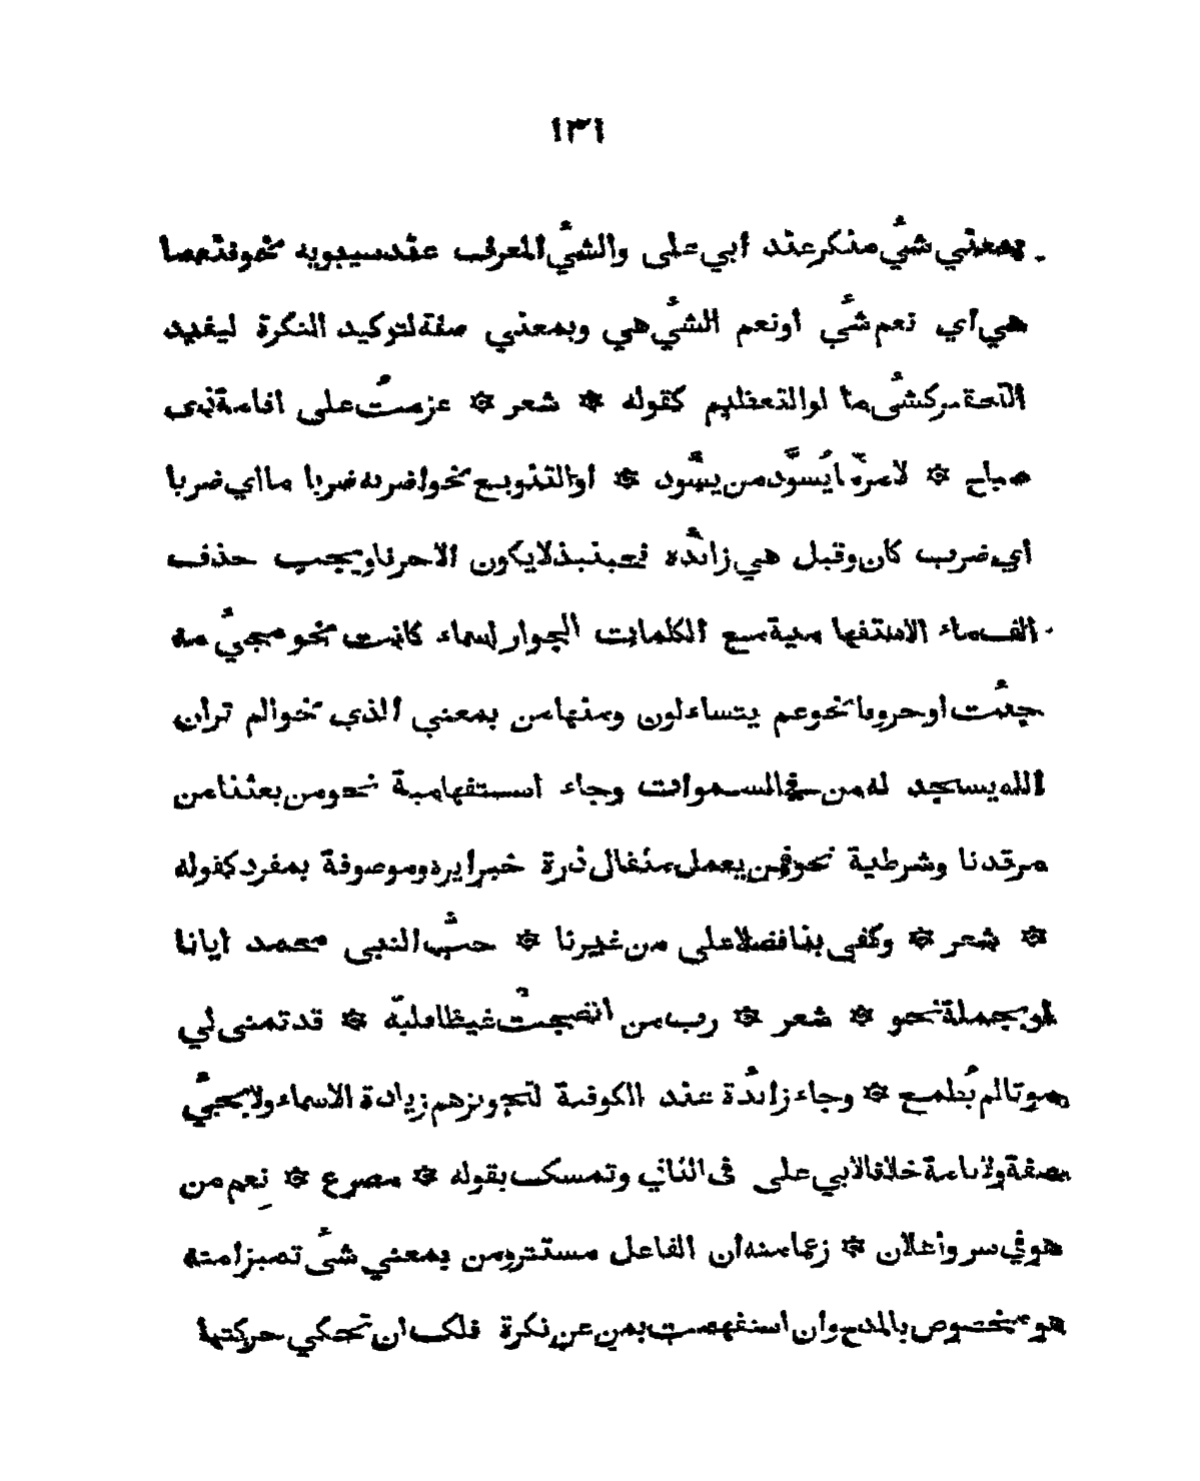 ١٣١
بمعني شئ منكر عند أبي على والشئ المعرف عند سيبويه نحو فنعما
هي أي نعم شئ أو نعم الشئ هي وبمعني صفة لتوكيد النكرة ليفيد
كشئ ما او التعظيم كقوله ۞ شعر ۞ عزمت على اقامة ذى
صباح ۞ لامر ما يسود من يسود ۞ او التنويع نحو اضربه ضربا ما اي ضربا
أي ضرب كان وقيل هي زائده فحينئذ لا يكون الا حرفا ويجب حذف
الف ماء الاستفهامية مع الكلمات الجوار اسماء كانت نحو مجيئ مه
جئت او حروفا نحو عم يتساءلون ومنها من بمعني الذي نحو الم تر أن
الله يسجد له من في السموات وجاء استفهامية نحو من بعثنا من
مرقدنا وشرطية نحو فمن يعمل مثقال ذرة خيرا يره وموصوفة بمفرد كقوله
۞ شعر ۞ وكفى بنا فضلا على من غيرنا ۞ حب النبى محمد ايانا
او بجملة نحو ۞ شعر ۞ رب من انضجت غيظا قلبه ۞ قد تمنى لي
موتا لم يطمع ۞ وجاء زائدة عند الكوفية لتجويزهم زيادة الاسماء ولا يجئ
صفة ولا تامة خلافا لابي على فى الثاني وتمسك بقوله ۞ مصرع ۞ نعم من
هو في سر وأعلان ۞ زعما منه أن الفاعل مستتر ومن بمعني شئ تميزا منه
هو مخصوص بالمدح وان استفهمت بمن عن نكرة فلك ان تحكي حركتها